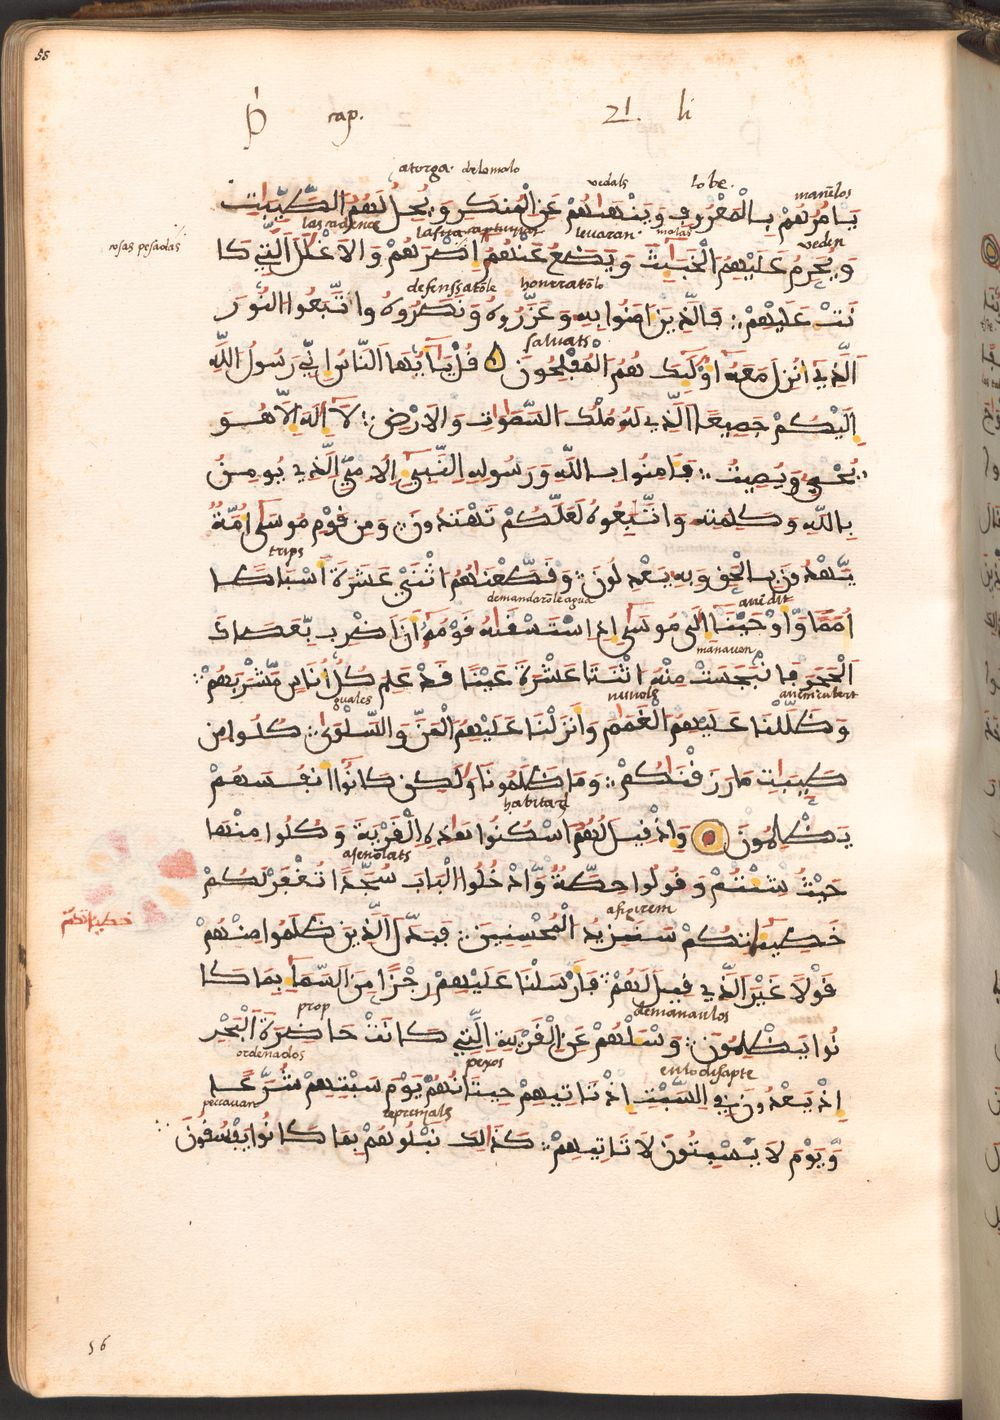 55
cap. 21. li
atorga. delo malo vedals lo be. manēlos
يَامُرُهُمْ بِالْمَعْرُوفِ وَيَنْهَاهُمْ عَنِ الْمُنكَرِ وَيُحِلُّ لَهُمُ الطَّيِّبَاتِ
las cadenes la sua levaran. malas veden
cosas pesadas
وَيُحَرِّمُ عَلَيْهِمُ الْخَبَائِثَ وَيَضَعُ عَنْهُمْ إِصْرَهُمْ وَالَاغْلَالَ الَّتِي كَا
defenssatōle honrratōlo
نَتْ عَلَيْهِمْ فَالَّذِينَ ءَامَنُوا بِهِ وَعَزَّرُوهُ وَنَصَرُوهُ وَاتَّبَعُوا النُّورَ
salvats
الَّذِي أُنزِلَ مَعَهُ أُوْلَئِكَ هُمُ الْمُفْلِحُونَ قُلْ يَا أَيُّهَا النَّاسُ إِنِّي رَسُولُ اللَّهِ
إِلَيْكُمْ جَمِيعًا الَّذِي لَهُ مُلْكُ السَّمَوَاتِ وَالَارْضِ لَا إِلَهَ إِلَّا هُوَ
يُحْيِي وَيُمِيتُ فَئَامِنُوا بِاللَّهِ وَرَسُولِهِ النَّبِيِّ الُامِّيِّ الَّذِي يُومِنُ
بِاللَّهِ وَكَلِمَتِهِ وَاتَّبِعُوهُ لَعَلَّكُمْ تَهْتَدُونَ وَمِن قَوْمِ مُوسَى أُمَّةٌ
trips
يَهْدُونَ بِالْحَقِّ وَبِهِ يَعْدِلُونَ وَقَطَّعْنَاهُمُ اثْنَتَيْ عَشْرَةَ أَسْبَاطًا
demandarōle agua
أُمَمًا وَأَوْحَيْنَا إِلَى مُوسَى إِذِ اسْتَسْقَاهُ قَوْمُهُ أَنِ اضْرِب بِّعَصَاكَ
manavon
الْحَجَرَ فَانبَجَسَتْ مِنْهُ اثْنَتَا عَشْرَةَ عَيْنًا قَدْ عَلِمَ كُلُّ أُنَاسٍ مَّشْرَبَهُمْ
guales nuvols
وَظَلَّلْنَا عَلَيْهِمُ الْغَمَامَ وَأَنزَلْنَا عَلَيْهِمُ الْمَنَّ وَالسَّلْوَى كُلُوا مِن
طَيِّبَاتِ مَا رَزَقْنَاكُمْ وَمَا ظَلَمُونَا وَلَكِن كَانُوا أَنفُسَهُمْ
habitad
يَظْلِمُونَ وَإِذْ قِيلَ لَهُمُ اسْكُنُوا هَذِهِ الْقَرْيَةَ وَكُلُوا مِنْهَا
حَيْثُ شِئْتُمْ وَقُولُوا حِطَّةٌ وَادْخُلُوا الْبَابَ سُجَّدًا تُغْفَرْ لَكُمْ
خَطِيئَاتُكُمْ سَنَزِيدُ الْمُحْسِنِينَ فَبَدَّلَ الَّذِينَ ظَلَمُوا مِنْهُمْ
قَوْلًا غَيْرَ الَّذِي قِيلَ لَهُمْ فَأَرْسَلْنَا عَلَيْهِمْ رِجْزًا مِنَ السَّمَاءِ بِمَا كَا
prop demanaulos
نُوا يَظْلِمُونَ وَسْئَلْهُمْ عَنِ الْقَرْيَةِ الَّتِي كَانَتْ حَاضِرَةَ الْبَحْرِ
ordenados pexos en lo disapte
إِذْ يَعْدُونَ فِي السَّبْتِ إِذْ تَاتِيهِمْ حِيتَانُهُمْ يَوْمَ سَبْتِهِمْ شُرَّعًا
peccavan
وَيَوْمَ لَا يَسْبِتُونَ لَا تَاتِيهِمْ كَذَلِكَ نَبْلُوهُمْ بِمَا كَانُوا يَفْسُقُونَ
56